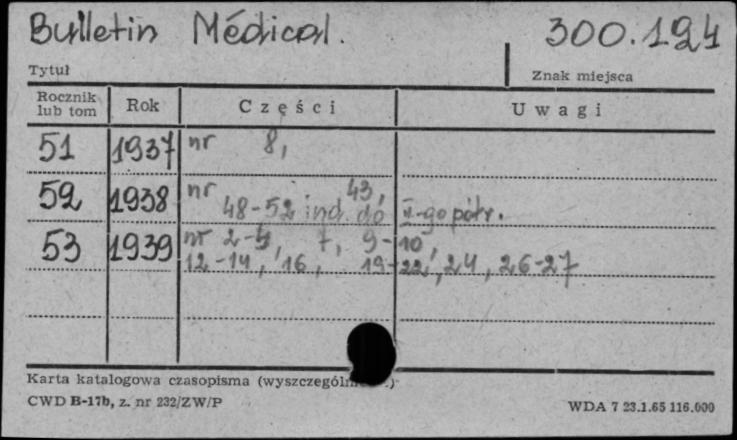 Bulletin Médical. 300.194
Tytuł Znak miejsca
Rocznik lub tom Rok Części Uwagi
51 1937 nr 8,
52 1938 nr 43,
48-52 ind. do II-go półr.
53 1939 nr 2-5, 7, 9-10,
12-14, 16, 19-22, 24, 26-27
Karta katalogowa czasopisma
CWD B-17b, z. nr 232/ZW/P WDA 7 23.1.65 116.000